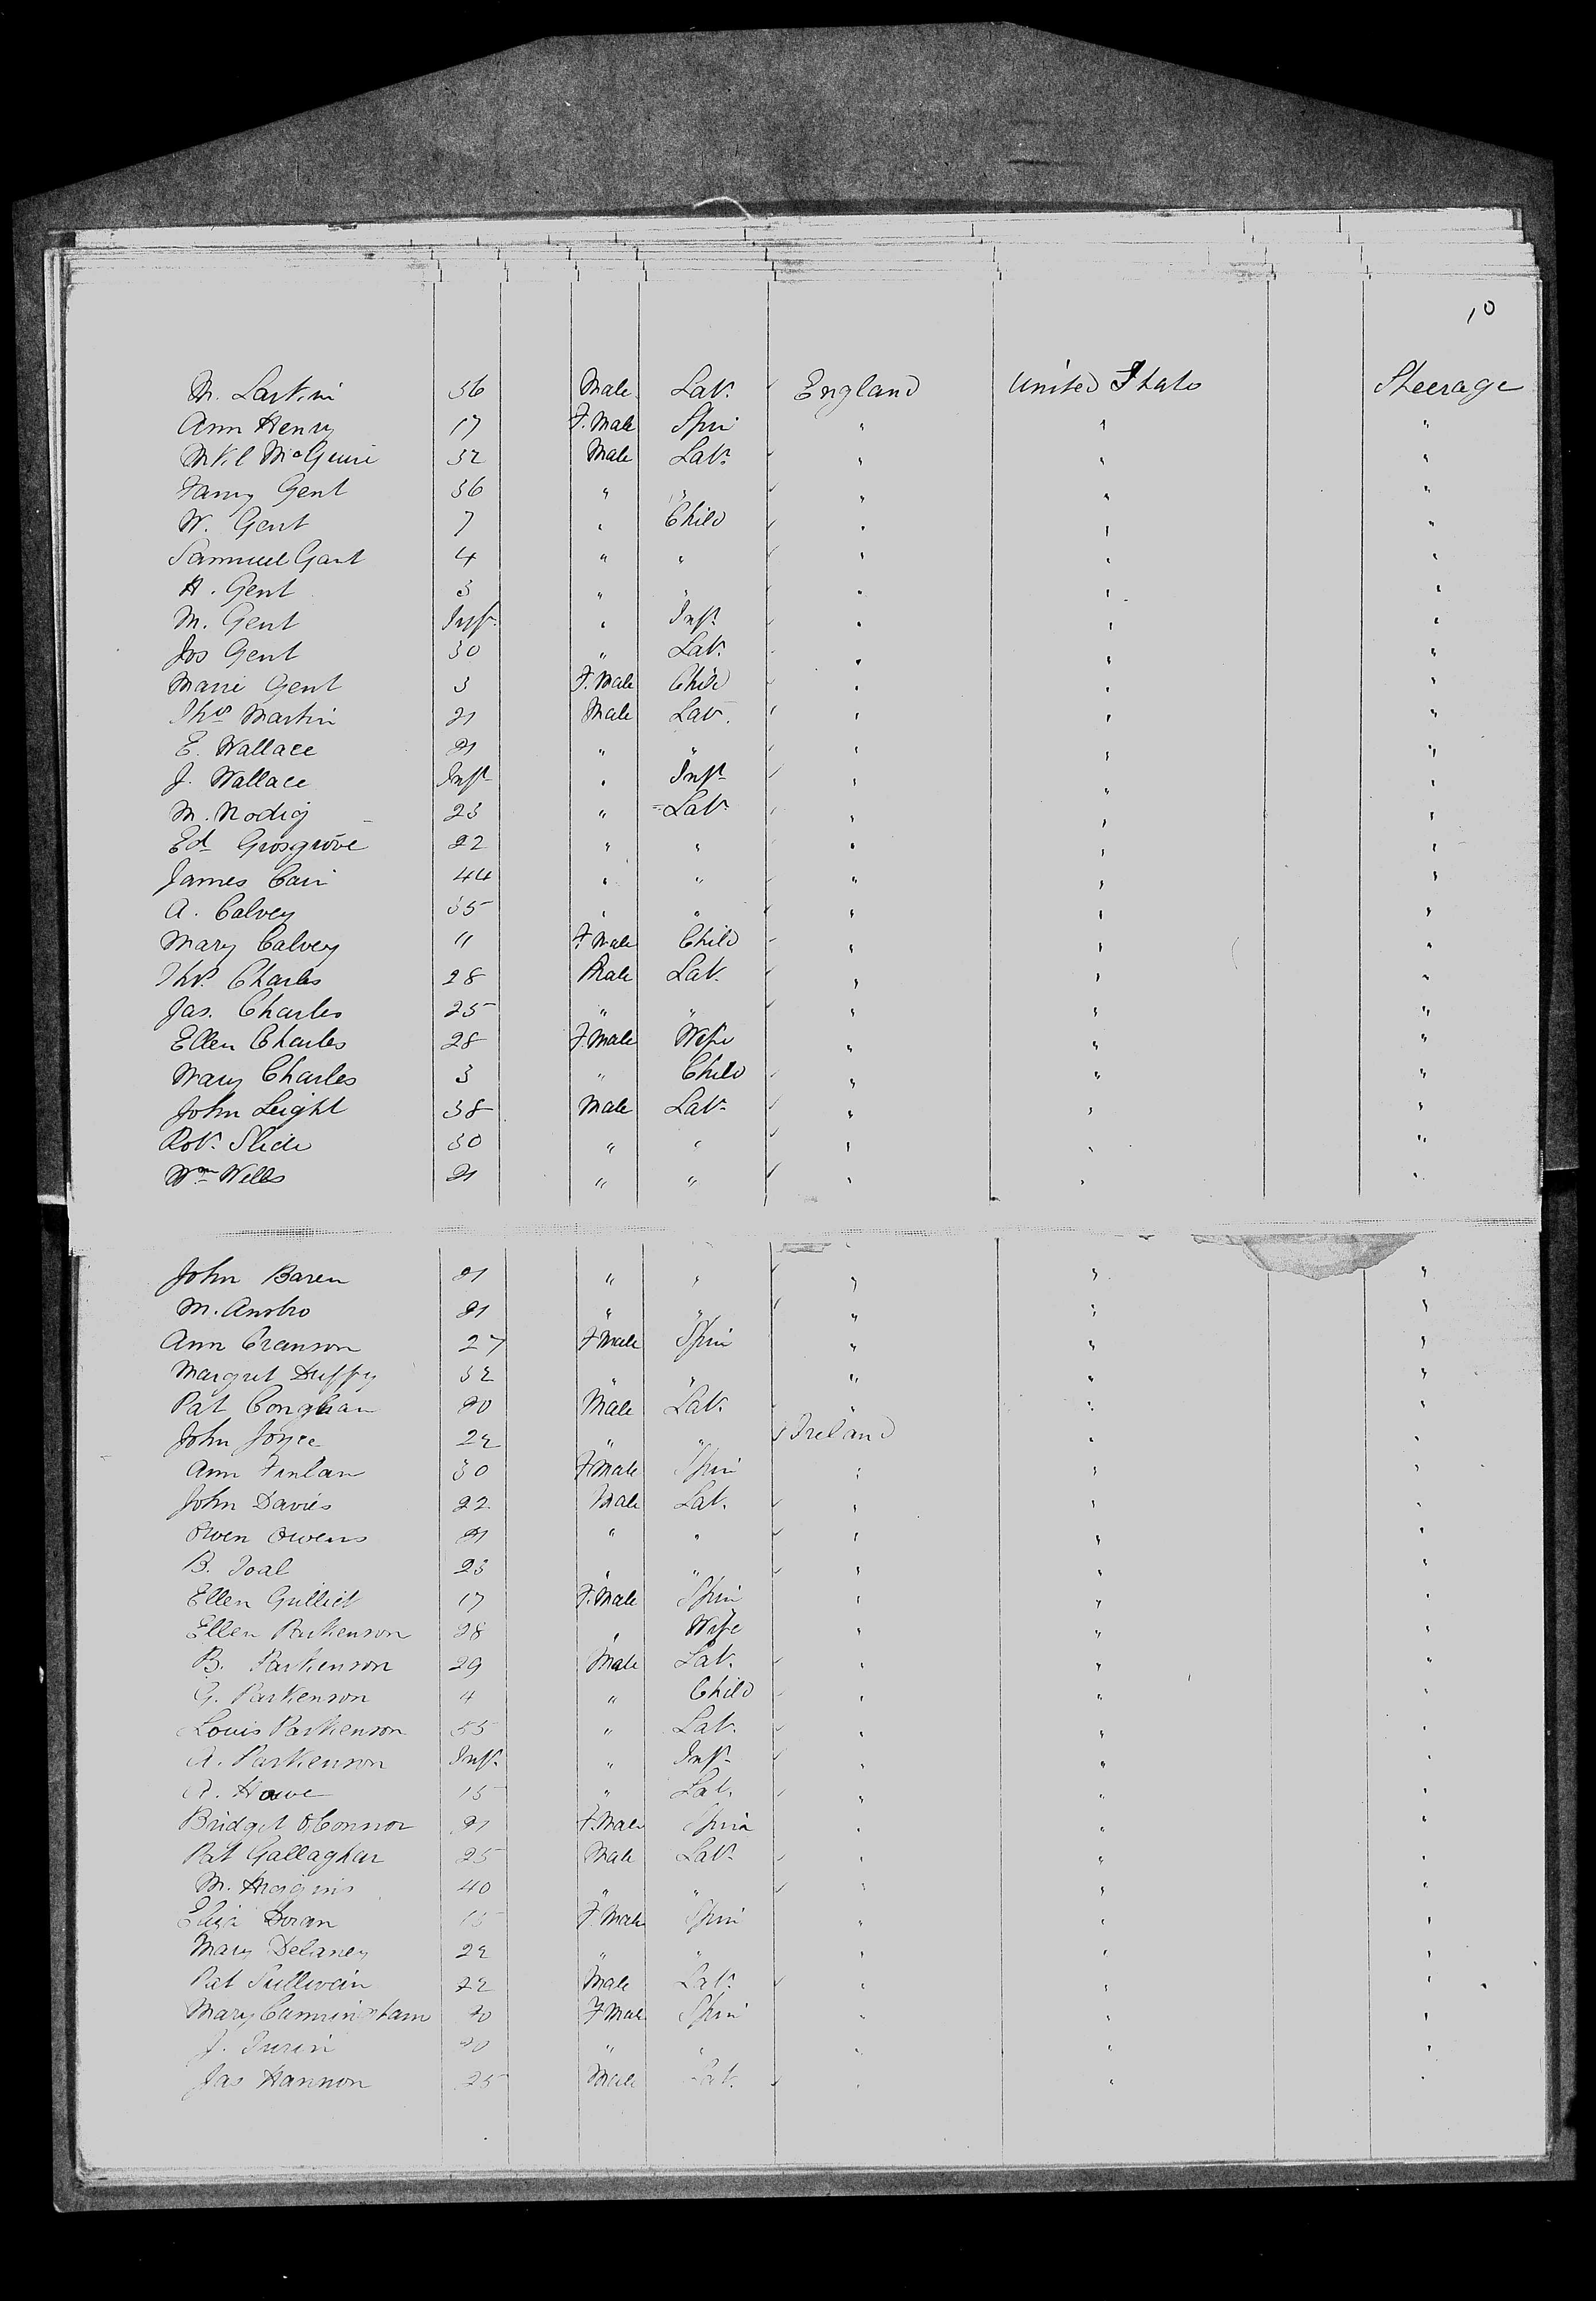 10
M. Larkin 36 Male Lab. England United States Steerage
Ann Henry 17 F.Male Spin " " "
Mkl McGuire 32 Male Lab. " " "
Fanny Gent 36 " " " " "
W. Gent 7 " Child " " "
Sammuel Gant 4 " " " " "
A. Gent 3 " " " " "
M. Gent Inft. " Inft. " " "
Jos Gent 30 " Lab. " " "
Marie Gent 3 F.Male Child " " "
Thos Martin 21 Male Lab. " " "
E. Wallace 21 " " " " "
J. Wallace Inft " Inft " " "
M. Nodig 23 " Lab. " " "
Ed Grosgrove 22 " " " " "
James Cain 44 " " " " "
A. Calvey 35 " " " " "
Mary Calvey 11 F.Male Child " " "
Thos. Charles 28 Male Lab. " " "
Jas. Charles 25 " " " " "
Ellen Charles 28 F.Male Wife " " "
Mary Charles 3 " Child " " "
John Leight 38 Male Lab. " " "
Rob. Slide 30 " " " " "
Wm Wells 21 " " " " "
John Baren 21 " " " " "
M. 21 " " " " "
Ann Cranson 27 F.Male Spin " " "
Margret Duffy 32 " " " " "
Pat Conghan 20 Male Lab. " " "
John Joyce 22 " " Ireland " "
Ann Finlan 30 F.Male Spin " " "
John Davies 22 Male Lab. " " "
Owen Owens 21 " " " " "
B. Toal 23 " " " " "
Ellen 17 F.Male Spin " " "
Ellen Parkenson 28 " Wife " " "
B. Parkenson 29 Male Lab. " " "
G. Parkenson 4 " Child " " "
Louis Parkenson 55 " Lab. " " "
A. Parkenson Inft. " Inft. " " "
A. Howe 15 " Lab. " " "
Bridget O'Connor 21 F.Male Spin " " "
Pat Gallaghar 25 Male Lab. " " "
M. 40 " " " " "
Eliza Doran 15 F.Male Spin " " "
Mary Delaney 22 " " " " "
Pat Sullivan 22 Male Lab. " " "
Mary Cunningham 20 F.Male Spin " " "
J. 20 " " " " "
Jas Hannon 25 Male Lab. " " "